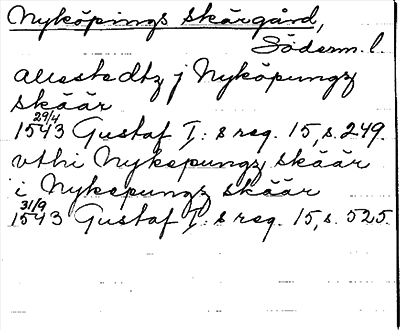 Nyköpings skärgård,
Söderm. l.
allestedtz j Nyköpungz
skäär
29/4
1543 Gustaf I: s reg. 15, s. 249.
vthi Nykepungz skäär
i Nykepungz skäär
31/9
1543 Gustaf I: s reg. 15, s. 525.